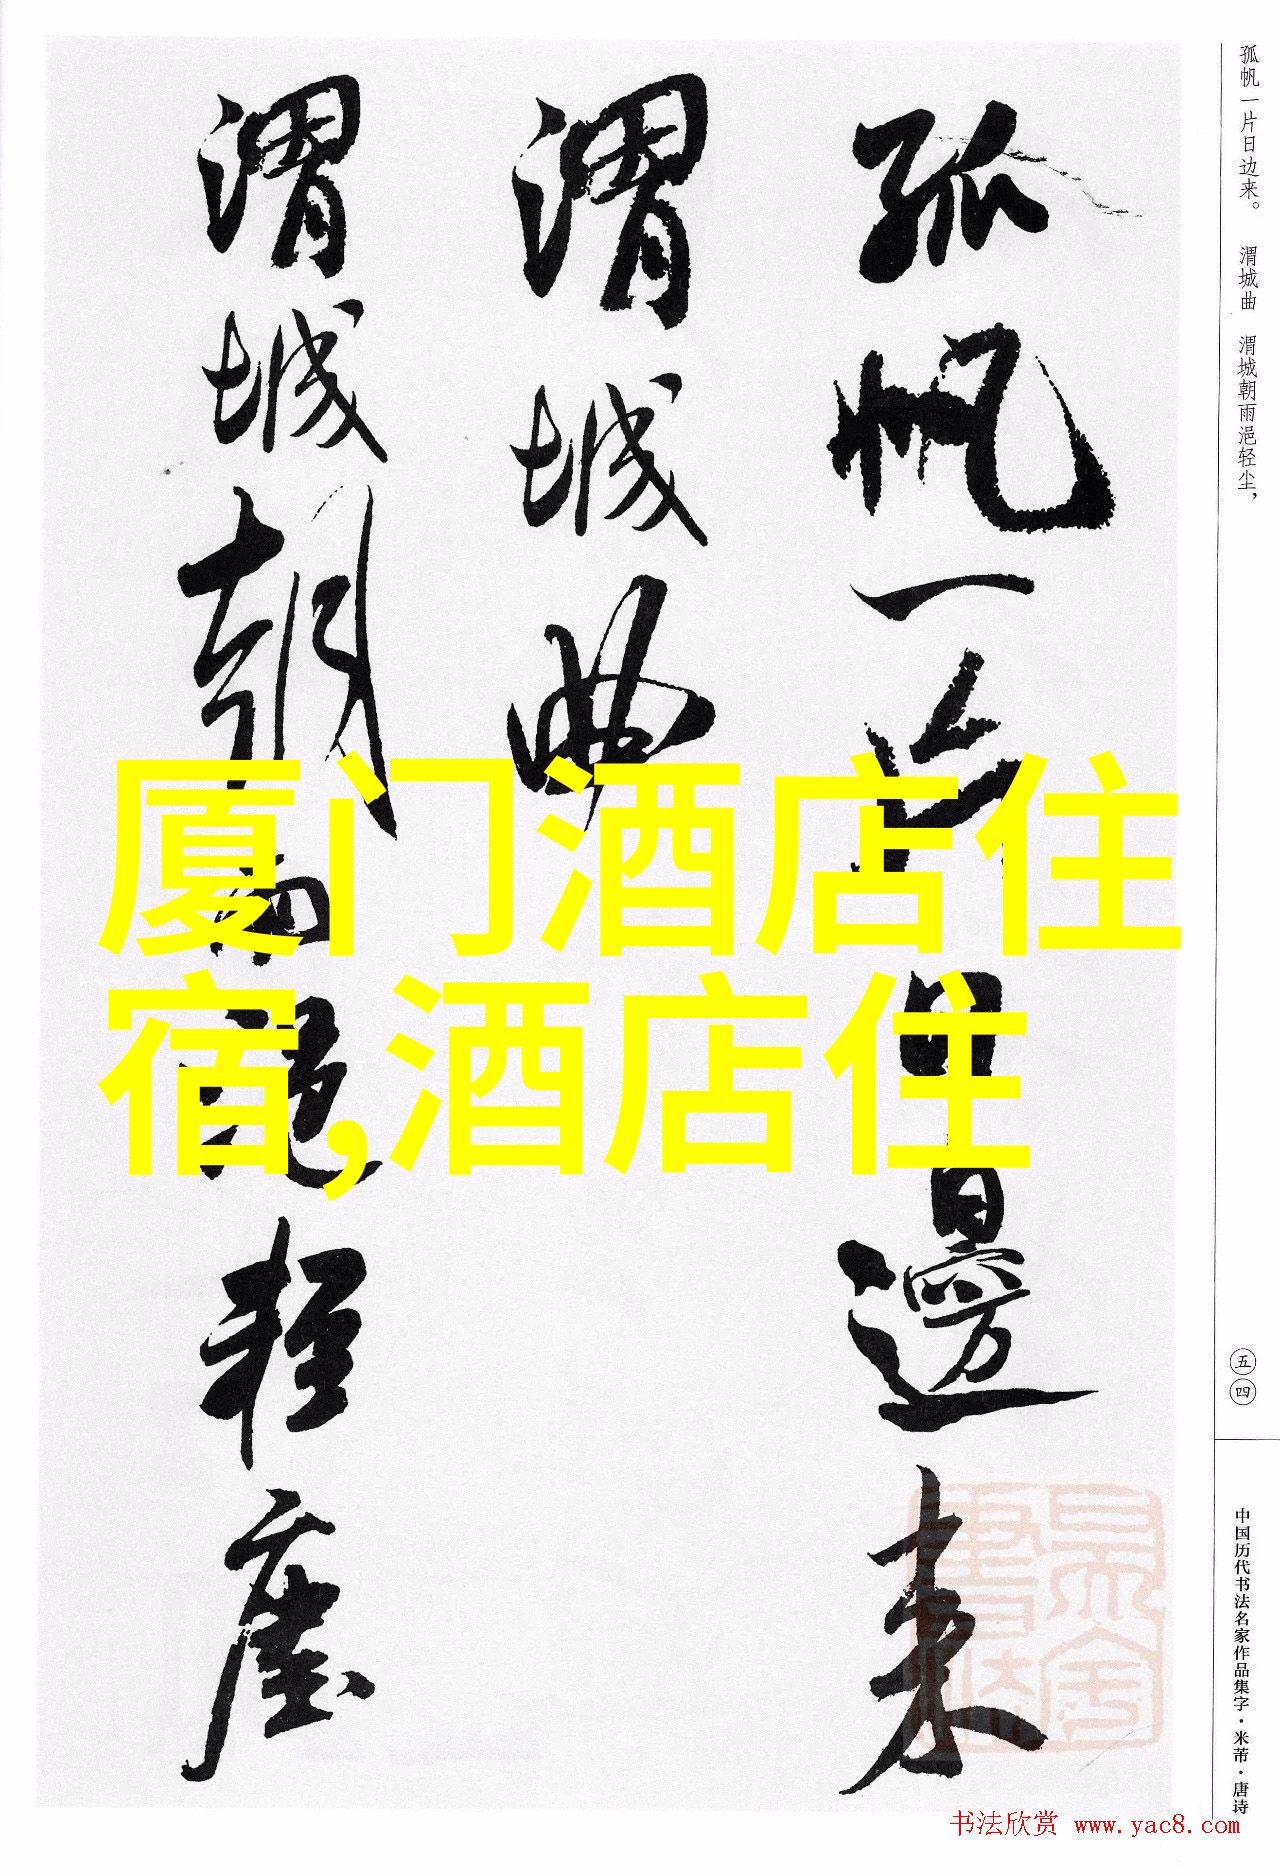 孤帆一片日边来。 渭城曲 渭城朝雨浥轻尘，
孤帆一片日邊来
渭城曲
渭城朝雨浥轻塵
厦门酒店住
宿,酒店住
五四
中国历代书法名家作品集字·米芾·唐诗
书法欣赏 www.yac8.com